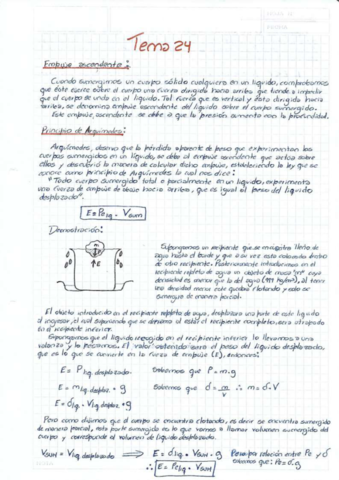 Tema 24
Empuje ascendente:
Cuando sumergimos un cuerpo sólido cualquiera en un líquido, comprobamos
que éste ejerce sobre el cuerpo una fuerza dirigida hacia arriba que tiende a impedir
que el cuerpo se hunda en el líquido. Tal fuerza que es vertical y está dirigida hacia
arriba, se denomina empuje ascendente del líquido sobre el cuerpo sumergido.
Este empuje ascendente se debe, a que la presión aumenta con la profundidad.
Principio de Arquímedes:
Arquímedes, observó que la pérdida aparente de peso que experimentan los
cuerpos sumergidos en un líquido, se debe al empuje ascendente que actúa sobre
ellos y descubrió la manera de calcular dicho empuje, estableciendo la ley que se
conoce como principio de Arquímedes la cual nos dice:
"Todo cuerpo sumergido total o parcialmente en un líquido, experimenta
una fuerza de empuje de abajo hacia arriba, que es igual al peso del líquido
desplazado".
E = Pe Liq. · Vsum
Demostración:
m
P
E
Supongamos un recipiente que se encuentra lleno de
agua hasta el borde y que a su vez está colocado dentro
de otro recipiente. Posteriormente introducimos en el
recipiente repleto de agua un objeto de masa "m" cuya
densidad es menor que la del agua
menor densidad hace que quede flotando y solo se
sumerge de manera parcial.
El objeto introducido en el recipiente repleto de agua, desplazará una parte de este líquido
al ingresar, el cual suponiendo que se derrama al estar el recipiente completo, será atrapado
en el recipiente inferior.
Supongamos que el líquido recogido en el recipiente inferior lo llevamos a una
balanza y lo pesamos. El valor obtenido será el peso del líquido desplazado,
que es lo que se convierte en la fuerza de empuje (E), entonces:
E = P Liq desplaz. Sabemos que P = m.g
E = m Liq desplaz · g Sabemos que δ = m/v ∴ m = δ.V
E = δ Liq. · V Liq desplaz · g
Pero como dijimos que el cuerpo se encuentra flotando, es decir se encuentra sumergido
de manera parcial, esta parte sumergida es lo que vamos a llamar volumen sumergido del
cuerpo y corresponde al volumen de líquido desplazado.
Vsum = V Liq desplazado ⟹ E = δ Liq · Vsum · g Para por relación entre Pe y δ
∴ E = Pe Liq · Vsum sabemos que: Pe = δ.g